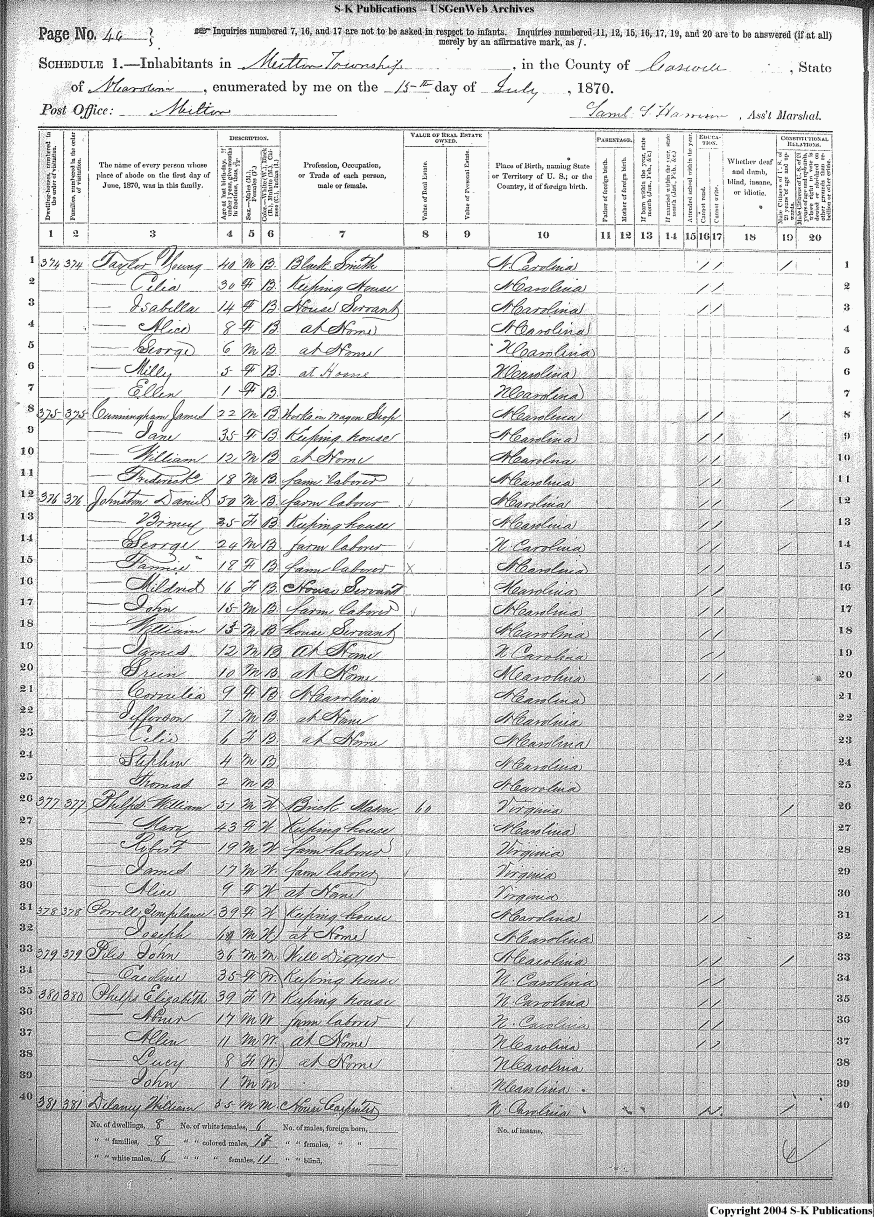 S-K Publications – USGenWeb Archives
Page No. 40
Inquiries numbered 7, 16, and 17 are not to be asked in respect to infants. Inquiries numbered 11, 12, 15, 16, 17, 19, and 20 are to be answered (if at all) merely by an affirmative mark, as /.
SCHEDULE 1.—Inhabitants in Milton Township, in the County of Caswell, State
of N Carolina, enumerated by me on the 15th day of July, 1870.
Post Office: Milton
Saml S Harrison, Ass't Marshal.
DESCRIPTION.
VALUE OF REAL ESTATE OWNED.
PARENTAGE.
EDUCATION.
CONSTITUTIONAL RELATIONS.
Dwelling-houses, numbered in the order of visitation.
Families, numbered in the order of visitation.
The name of every person whose place of abode on the first day of June, 1870, was in this family.
Profession, Occupation, or Trade of each person, male or female.
Value of Real Estate.
Place of Birth, naming State or Territory of U. S.; or the Country, if of foreign birth.
Father of foreign birth.
Mother of foreign birth.
If born within the year, state month (Jan., Feb., &c.)
If married within the year, state month (Jan., Feb., &c.)
Attended school within the year.
Cannot read.
Cannot write.
Whether deaf and dumb, blind, insane, or idiotic.
1 2 3 4 5 6 7 8 9 10 11 12 13 14 15 16 17 18 19 20
1 374 374 Taylor Young 40 M B Black Smith N Carolina / / / 1
2 — Celia 30 F B Keeping House N Carolina / / 2
3 — Isabella 14 F B House Servant N Carolina / / 3
4 — Alice 8 F B at Home N Carolina 4
5 — George 6 M B at Home N Carolina 5
6 — Milly 5 F B at Home N Carolina 6
7 — Ellen 1 F B N Carolina 7
8 375 375 Cunningham James 22 M B Works in Wagon Shop N Carolina / / / 8
9 — Jane 35 F B Keeping house N Carolina / / 9
10 — William 12 M B at Home N Carolina / / 10
11 — Frederick 18 M B farm laborer N Carolina / / 11
12 376 376 Johnston Daniel 50 M B farm laborer N Carolina / / / 12
13 — 35 F B Keeping house N Carolina / / 13
14 — George 24 M B farm laborer N Carolina / / / 14
15 — Fannie 18 F B farm laborer X N Carolina / / 15
16 — Mildred 16 F B House Servant N Carolina / / 16
17 — John 15 M B farm laborer N Carolina / / 17
18 — William 13 M B house Servant N Carolina / / 18
19 — James 12 M B At Home N Carolina / / 19
20 — 10 M B at Home N Carolina / / 20
21 — Cornelia 9 F B N Carolina N Carolina 21
22 — Jefferson 7 M B at Home N Carolina 22
23 — Celie 6 F B at Home N Carolina 23
24 — Stephen 4 M B N Carolina 24
25 — Thomas 2 M B N Carolina 25
26 377 377 Phelps William 51 M W Brick Mason 60 Virginia / 26
27 — Mary 43 F W Keeping house N Carolina 27
28 — Robert 19 M W farm laborer Virginia 28
29 — James 17 M W farm laborer Virginia 29
30 — Alice 9 F W at Home Virginia 30
31 378 378 Powell Temperance 39 F W Keeping house N Carolina / / 31
32 — Joseph M W at Home N Carolina 32
33 379 379 Piles John 36 M M Well Digger N Carolina / / / 33
34 — Caroline 35 F W Keeping house N. Carolina / / 34
35 380 380 Phelps Elizabeth 39 F W Keeping house N. Carolina / / 35
36 — Abner 17 M W farm laborer N. Carolina / / 36
37 — Allen 11 M W at Home N Carolina / / 37
38 — Lucy 8 F W at Home N Carolina 38
39 — John 1 M M N Carolina 39
40 381 381 Delaney William 35 M M House Carpenter N Carolina / 40
No. of dwellings, 8 No. of white females, 6 No. of males, foreign born, No. of insane,
" " families, 8 " " colored males, 17 " " females, " "
" " white males, 6 " " " females, 11 " " blind,
Copyright 2004 S-K Publications